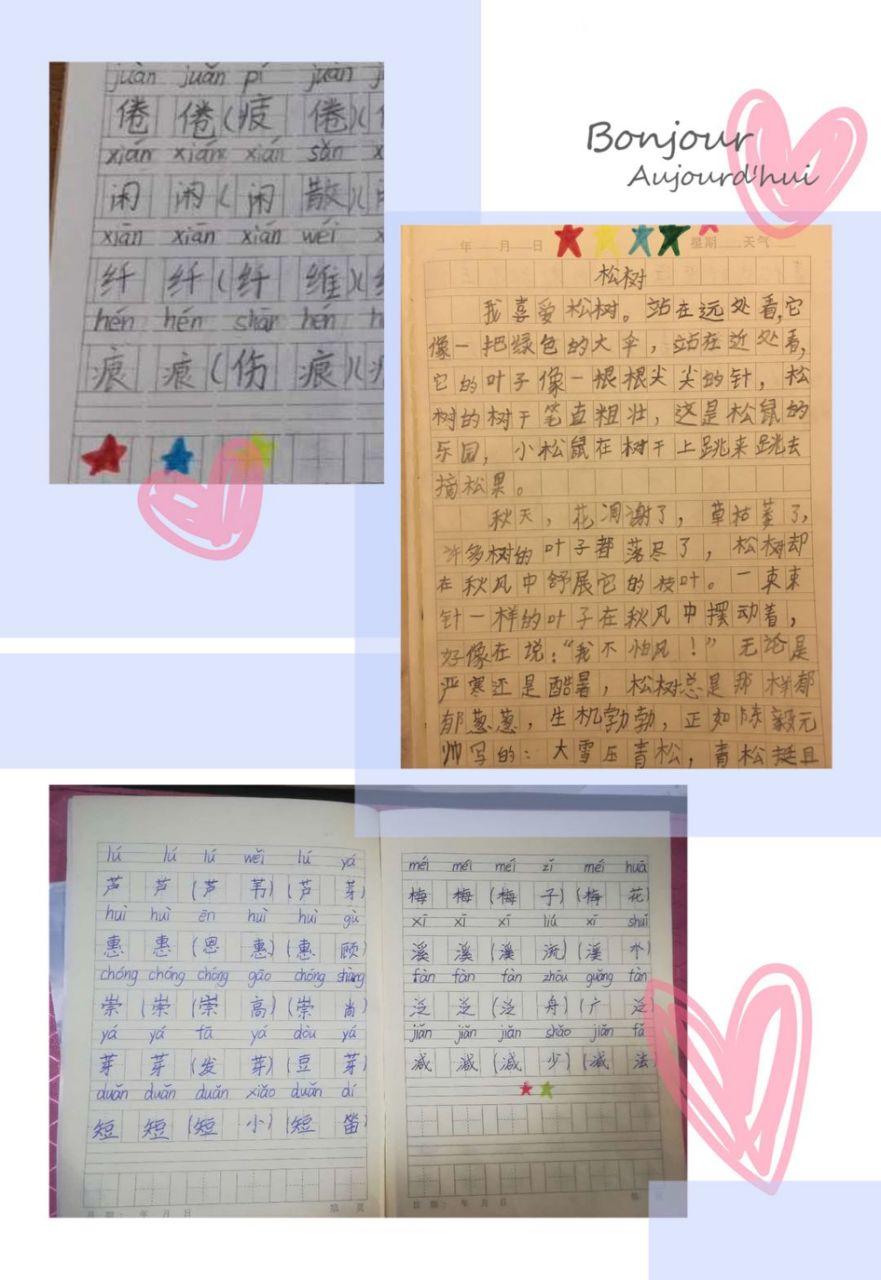 juàn juǎn pí juàn
倦 倦(疲 倦)(
xián xián xián sǎn x
闲 闲(闲 散)(闲
xiān xiān xiān wéi x
纤 纤(纤 维)(纤
hén hén shāng hén h
痕 痕(伤 痕)(
Bonjour
Aujourd'hui
年 月 日 星期 天气
松树
我喜爱松树。站在远处看,它
像一把绿色的大伞,站在近处看,
它的叶子像一根根尖尖的针,松
树的树干笔直粗壮,这是松鼠的
乐园,小松鼠在树干上跳来跳去
摘松果。
秋天,花凋谢了,草枯萎了,
许多树的叶子都落尽了,松树却
在秋风中舒展它的枝叶。一束束
针一样的叶子在秋风中摆动着,
好像在说:“我不怕风!”无论是
严寒还是酷暑,松树总是那样郁
郁葱葱,生机勃勃,正如陈毅元
帅写的:大雪压青松,青松挺且
lú lú lú wěi lú yá
芦 芦(芦 苇)(芦 芽)
huì huì ēn huì huì gù
惠 惠(恩 惠)(惠 顾)
chóng chóng chóng gāo chóng shàng
崇(崇(崇 高)(崇 尚
yá yá fā yá dòu yá
芽 芽(发 芽)(豆 芽)
duǎn duǎn duǎn xiǎo duǎn dí
短 短(短 小)(短 笛
日期: 年 月 日 第 页
méi méi méi zǐ méi huā
梅 梅(梅 子)(梅 花)
xī xī xī liú xī shuǐ
溪 溪(溪 流)(溪 水)
fàn fàn fàn zhōu guǎng fàn
泛 泛(泛 舟)(广 泛)
jiǎn jiǎn jiǎn shǎo jiǎn fǎ
减 减(减 少)(减 法)
日期: 年 月 日 第 页